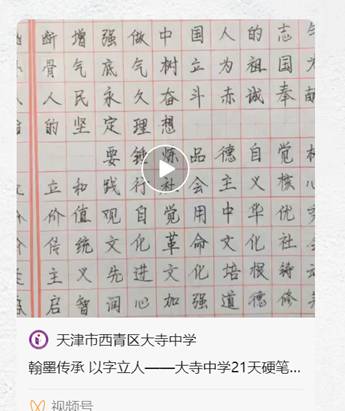 断增强做中国人的志
骨气底气树立为祖国
人民永久奋斗赤诚奉献
的坚定理想
要锤炼品德自觉
立和践行社会主义核心
价值观自觉用中华优
传统文化革命文化社
主义先进文化培根铸
启智润心加强道德修
天津市西青区大寺中学
翰墨传承 以字立人——大寺中学21天硬笔...
视频号